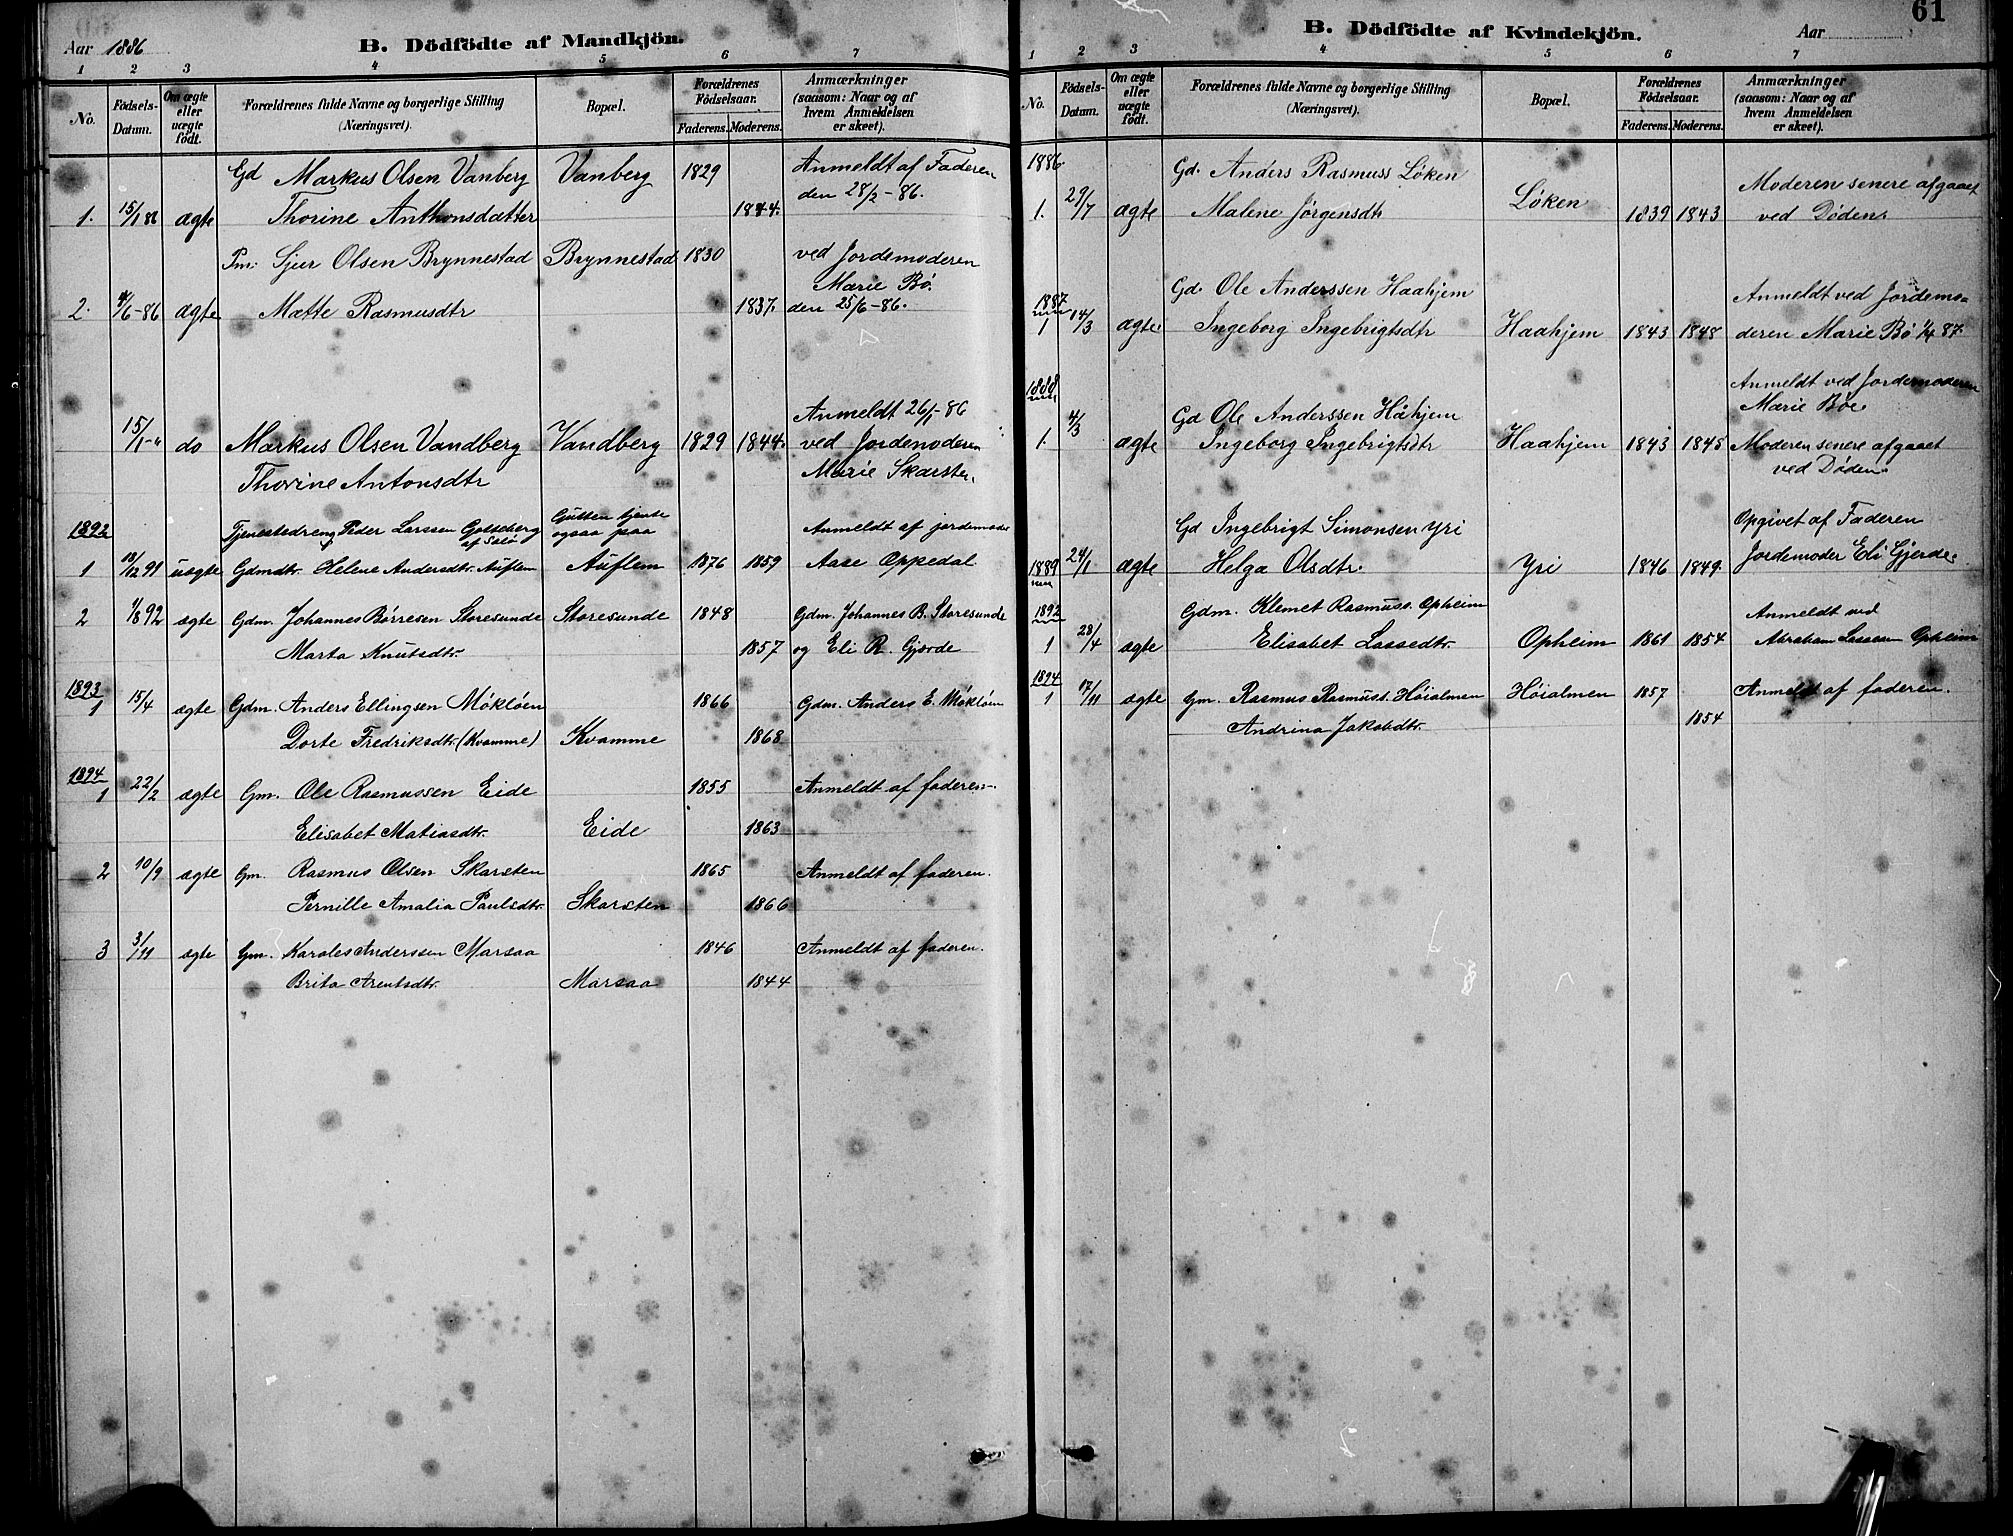 61
Aar 1886
B. Dödfödte af Mandkjön.
1 2 3 4 5 6 7
No.
Födsels-Datum.
Om ægte eller uægte födt.
Forældrenes fulde Navne og borgerlige Stilling (Næringsvei).
Bopæl.
Forældrenes Födselsaar.
Faderens. Moderens.
Anmærkninger (saasom: Naar og af hvem Anmeldelsen er skeet).
Gd Markus Olsen Vanberg Vanberg 1829 Anmeldt af Faderen
den 28/2-86.
1. 15/1 86 ægte Thorine Anthonsdatter 1844.
Pm. Sjur Olsen Brynnestad Brynnestad 1830 ved Jordemoderen
Marie Bø.
2. 4/6-86 ægte Mætte Rasmusdtr 1837. den 25/6-86.
Anmeldt 26/1-86
15/1-" do Markus Olsen Vandberg Vandberg 1829 1844. ved Jordemoderen
Thorine Antonsdtr Marie Skarsten.
1892 Tjenestedreng Peder Larssen Gotteberg Gutten tjente Anmeldt af jordemoder
ogsaa paa
1 18/12 91 uægte Gdmdtr. Helene Andersdtr. Auflem Auflem 1876 1859 Aase Oppedal
2 1/8 92 ægte Gdm. Johannes Børresen Storesunde Storesunde 1848 Gdm. Johannes B. Storesunde
Marta Knutsdtr. 1857 og Eli R. Gjerde
1893
1 15/4 ægte Gdm. Anders Ellingsen Mökløen 1866 Gdm. Anders E. Mökløen
Dorte Fredriksdtr. (Kvamme) Kvamme 1868
1894
1 22/2 ægte Gm. Ole Rasmussen Eide 1855 Anmeldt af faderen.
Elisabet Matiasdtr. Eide 1863
2 10/9 ægte Gm. Rasmus Olsen Skarsten 1865 Anmeldt af faderen.
Pernille Amalia Paulsdtr. Skarsten 1866
3 3/11 ægte Gm. Karoles Anderssen Marsaa 1846 Anmeldt af faderen.
Brita Arentsdtr. Marsaa 1844
B. Dödfödte af Kvindekjön.
Aar
1 2 3 4 5 6 7
No.
Födsels-Datum.
Om ægte eller uægte födt.
Forældrenes fulde Navne og borgerlige Stilling (Næringsvei).
Bopæl.
Forældrenes Födselsaar.
Faderens. Moderens.
Anmærkninger (saasom: Naar og af hvem Anmeldelsen er skeet).
1886. Gd. Anders Rasmuss Løken Moderen senere afgaaet
1. 29/7 ægte Malene Jørgensdtr Løken 1839 1843 ved Døden.
1887 Gd. Ole Anderssen Haahjem Anmeldt ved Jordemo-
1 14/3 ægte Ingeborg Ingebrigtsdtr Haahjem 1843 1848 deren Marie Bø 1/4 87.
1888 Anmeldt ved Jordemoderen
4/3 Gd Ole Anderssen Håhjem Marie Bøe
1. ægte Ingeborg Ingebrigtsdtr Haahjem 1843 1848 Moderen senere afgaaet
ved Døden.
Gd Ingebrigt Simonsen Yri Opgivet af Faderen
1889 24/1 ægte Helga Olsdtr. Yri 1846 1849. Jordemoder Eli Gjerde.
1892 Gdm. Klemet Rasmuss. Opheim Anmeldt ved
1 28/4 ægte Elisabet Lassedtr. Opheim 1861 1854 Abraham Lassen Opheim
1894
1 17/11 ægte Gm. Rasmus Rasmuss. Høialmen Høialmen 1857 Anmeldt af faderen.
Andrina Jakobdtr. 1854